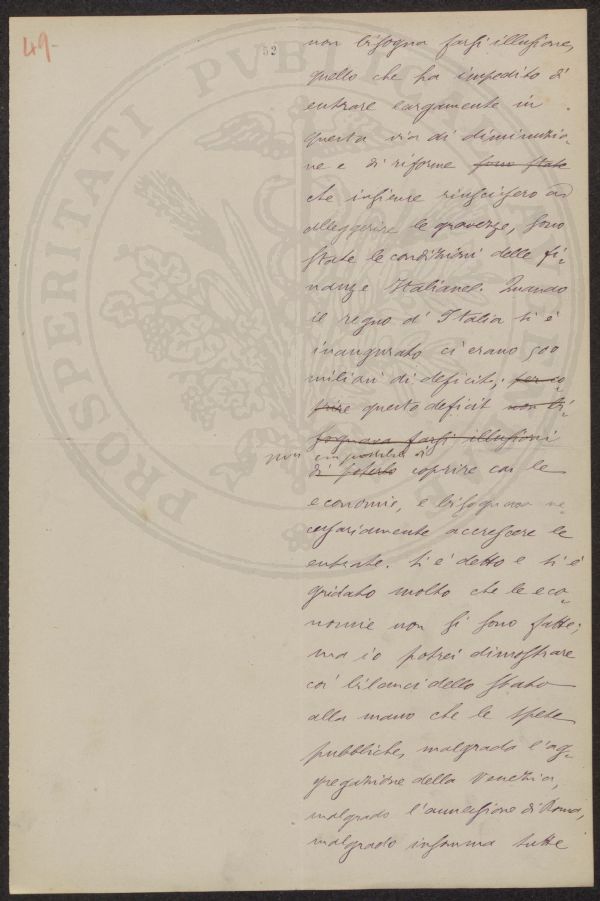 49-
52
PROSPERITATI PVBLICAE
non bisogna farsi illusione,
quello che ha impedito di
entrare largamente in
questa via di diminuzio-
ne e di riforme sono state
che insieme riuscisero ad
alleggerire le gravezze, sono
state le condizioni delle fi-
nanze Italiane. Quando
il regno d'Italia si è
inaugurato ci erano 500
milioni di deficit; per co-
prire questo deficit non bi-
sognava farsi illusioni
non impossibile di
di poterlo coprire con le
economie, e bisognava ne-
cessariamente accrescere le
entrate. Si è detto e si è
gridato molto che le eco-
nomie non si sono fatte;
ma io potrei dimostrare
coi bilanci dello stato
alla mano che le spese
pubbliche, malgrado l'ag-
gregazione della Venezia,
malgrado l'annessione di Roma,
malgrado insomma tutte